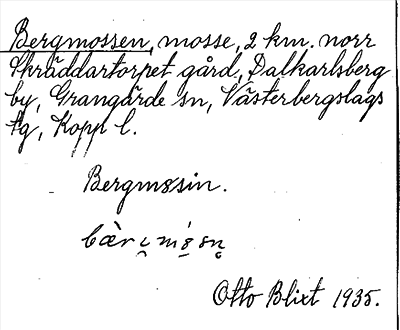 Bergmossen, mosse, 2 km. norr
Skräddartorpet gård, Dalkarlsberg
by, Grangärde sn, Västerbergslags
tg, Kopp l.
Bergmossin.
Otto Blixt 1935.